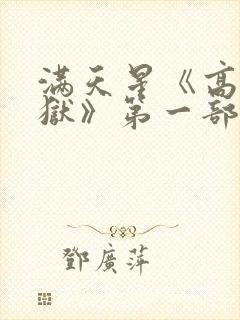 满天星《高
獄》第一部
鄧廣萍